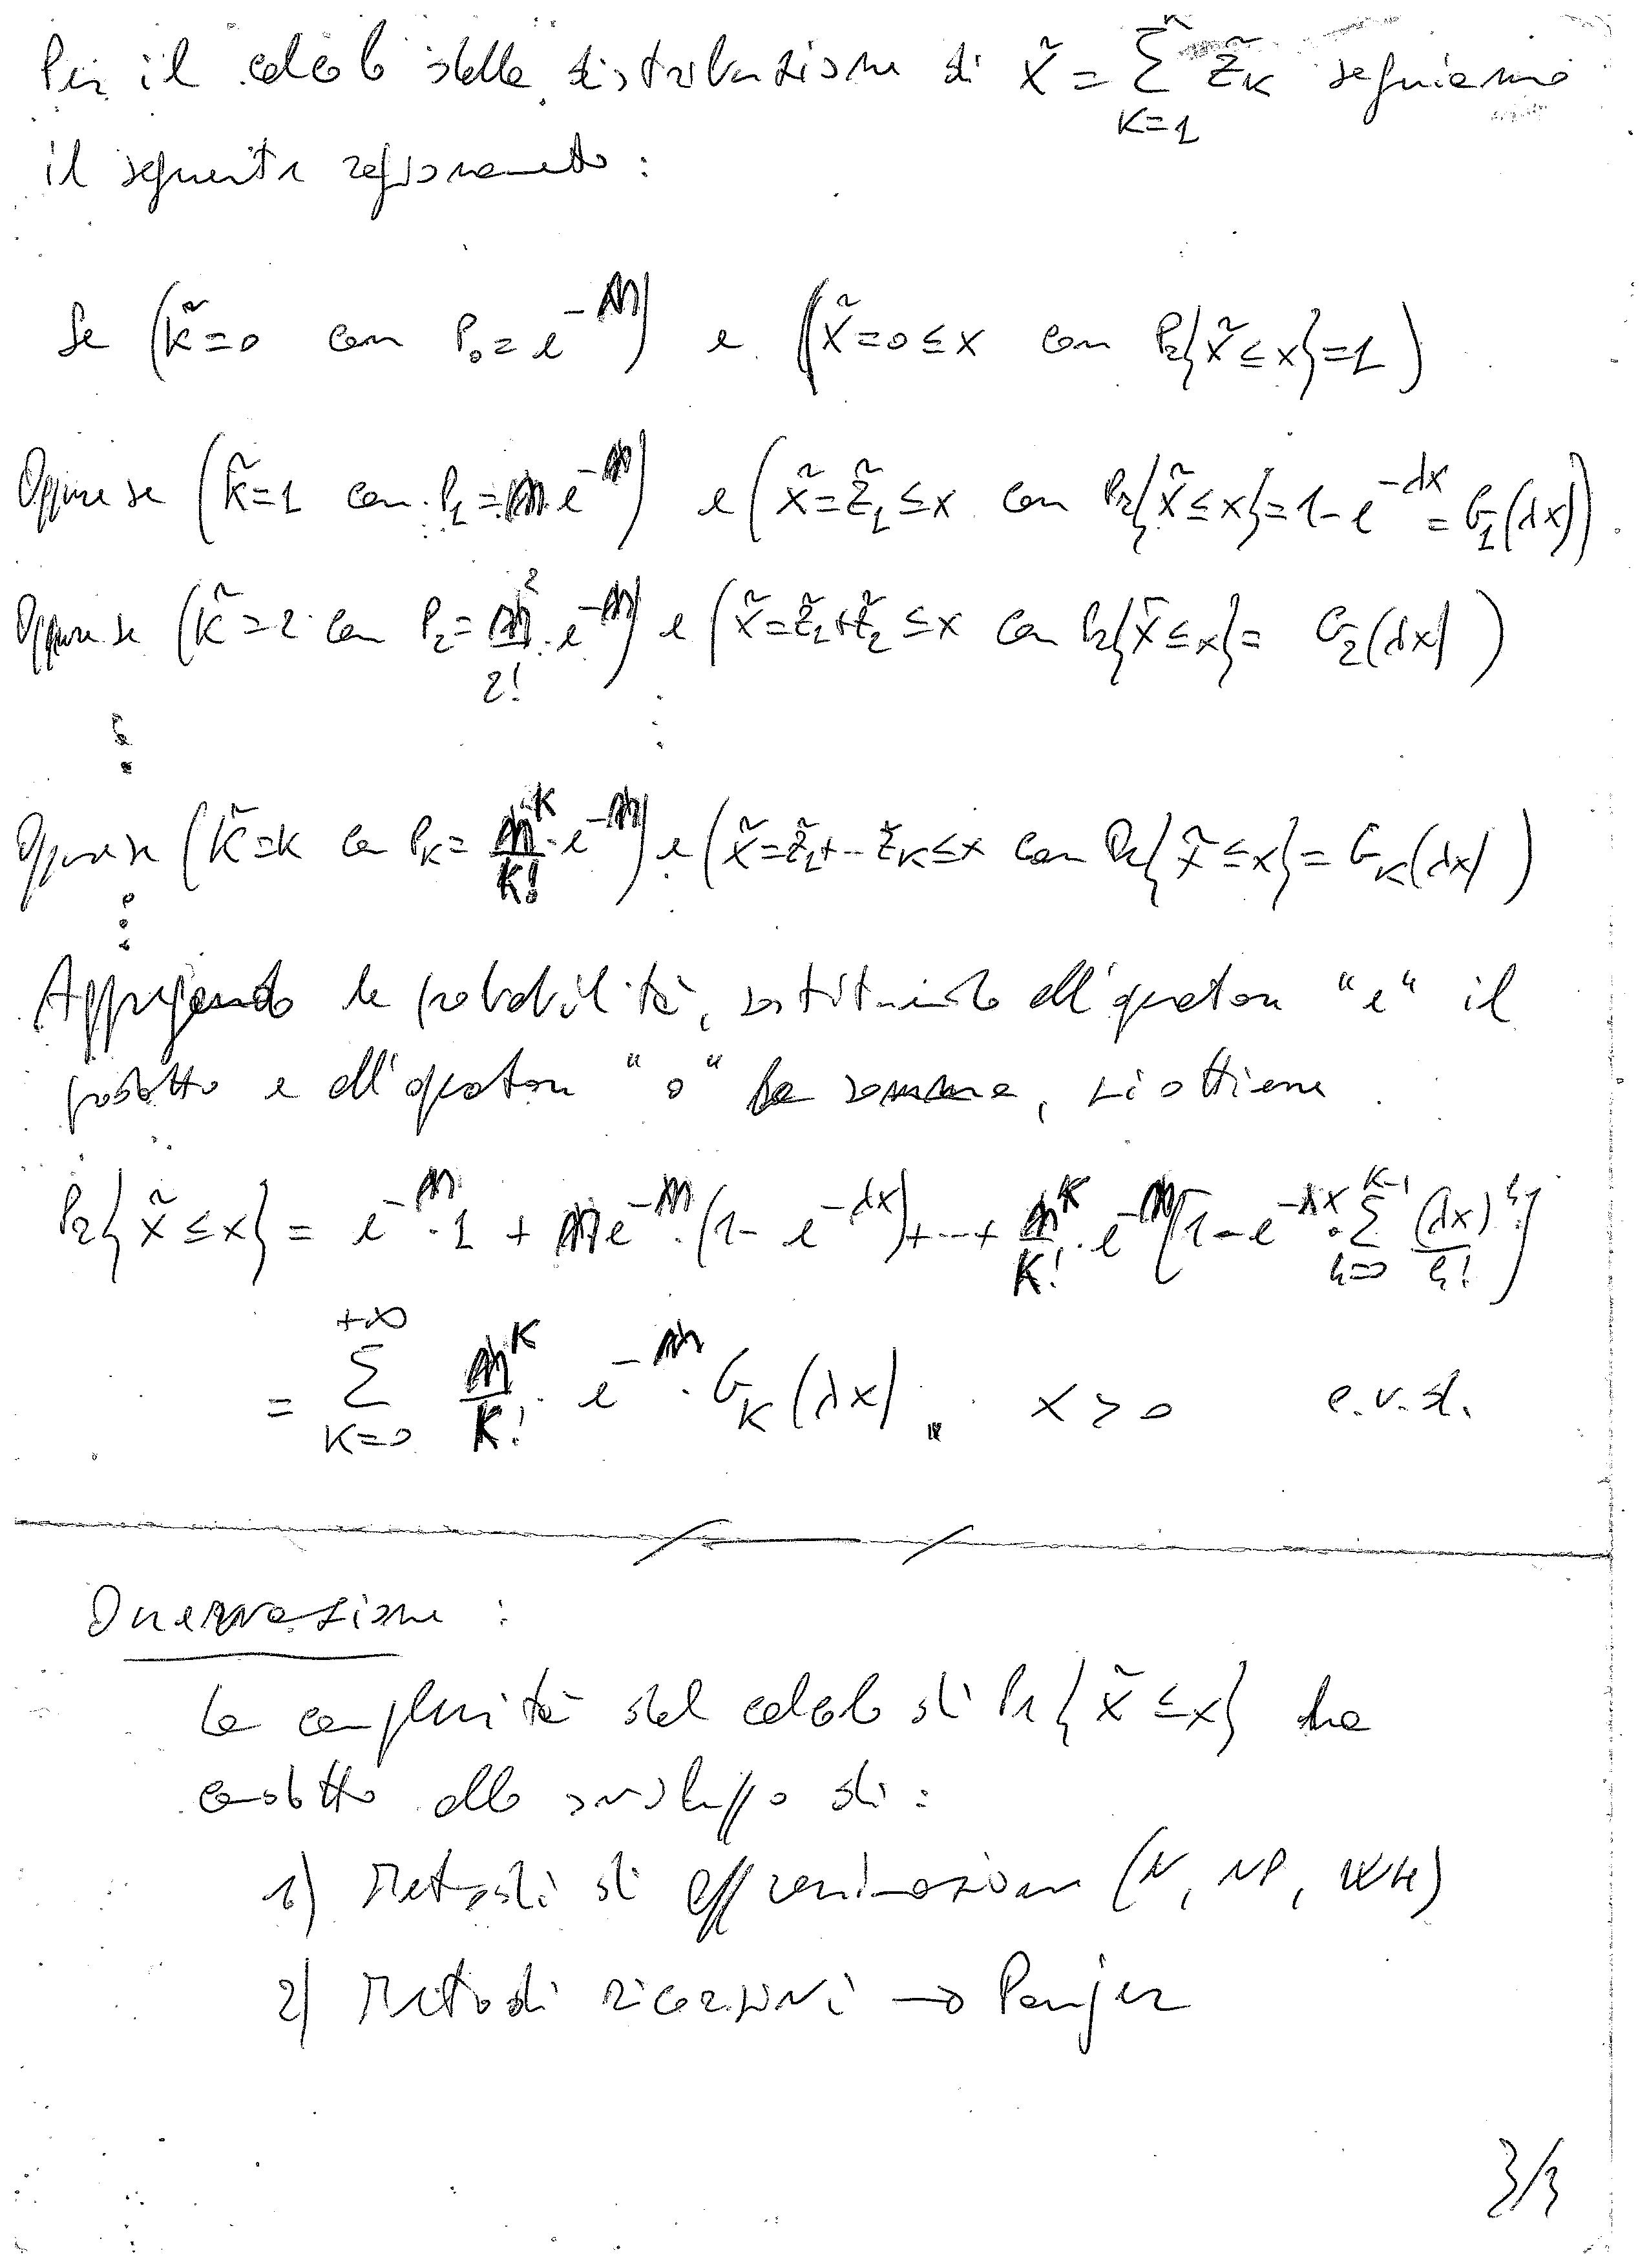 Per il calcolo della distribuzione di X̃ = Σ_{K=1}^{K̃} Z̃_K seguiamo
il seguente ragionamento:
Se (K̃=0 con P₀=e^{-m}) e (X̃=0≤x con Pr{X̃≤x}=1)
Oppure se (K̃=1 con P₁=m e^{-m}) e (X̃=Z̃₁≤x con Pr{X̃≤x}=1-e^{-λx}=G₁(λx))
Oppure se (K̃=2 con P₂=m²/2!·e^{-m}) e (X̃=Z̃₁+Z̃₂≤x con Pr{X̃≤x}= G₂(λx))
⋮ ⋮
Oppure se (K̃=K con P_K=m^K/K!·e^{-m}) e (X̃=Z̃₁+…Z̃_K≤x con Pr{X̃≤x}=G_K(λx))
⋮
Applicando le probabilità, sostituendo all'operatore "e" il
prodotto e all'operatore "o" la somma, si ottiene
Pr{X̃≤x} = e^{-m}·1 + m e^{-m}·(1-e^{-λx})+…+ m^K/K!·e^{-m}[1-e^{-λx}·Σ_{h=0}^{K-1} (λx)^h/h!]
= Σ_{K=0}^{+∞} m^K/K!·e^{-m}·G_K(λx), x>0 c.v.d.
Osservazione:
La complessità del calcolo di Pr{X̃≤x} ha
condotto allo sviluppo di:
1) Metodi di approssimazione (N, NP, WH)
2) Metodi ricorsivi → Panjer
3/3